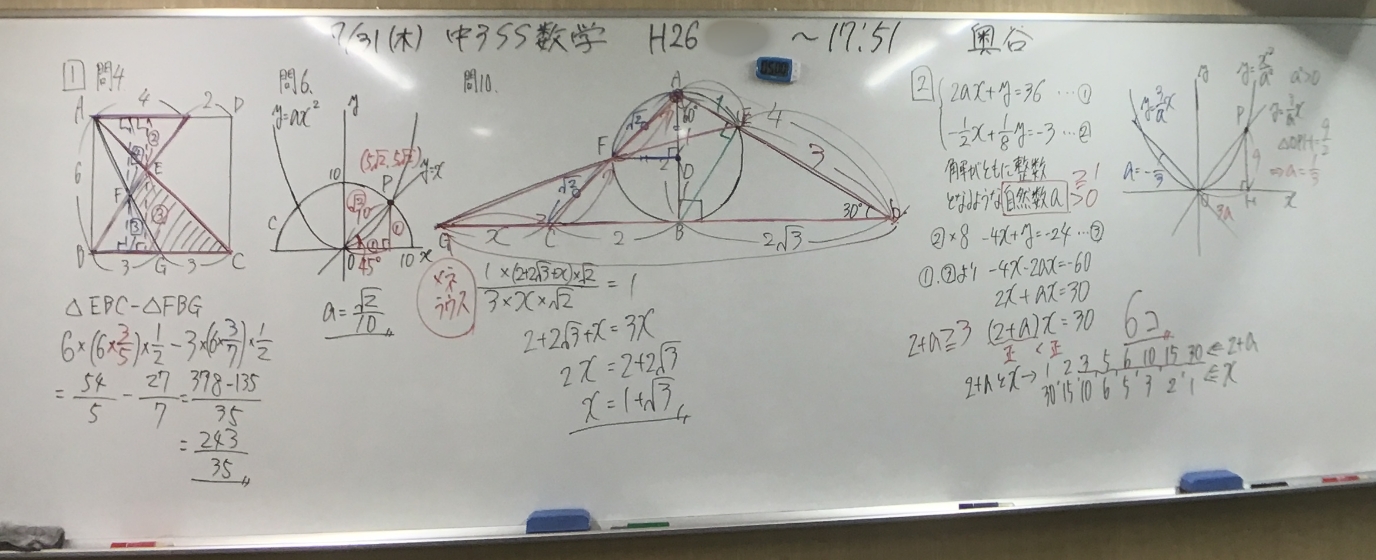 7/31(木) 中3SS数学 H26 ~17:51 奥谷
05:00
1 問4
A 4 2 D
6
E
F
B 3 G 3 C
△EBC-△FBG
6×(6×3/5)×1/2-3×(6×3/7)×1/2
=54/5-27/7=378-135/35
=243/35
問6.
y=ax²
y
(5√2,5√2)
y=x
10
P
C
√2
10
①
①
0 45° 10 x
a=√2/10
問10.
A
60°
1
E
4
√2
F
3
2
D
√2
30°
G x C 2 B 2√3 D
メネラウス
1×(2+2√3+x)×√2/3×x×√2=1
2+2√3+x=3x
2x=2+2√3
x=1+√3
2
2ax+y=36 …①
-1/2x+1/8y=-3 …②
角解がともに整数
となるような自然数a
≧1
>0
②×8 -4x+y=-24 …③
①,③より -4x-2ax=-60
2x+ax=30
(2+a)x=30
2+a≧3
正 <正
6コ
2+aとx→ 1 2 3 5 6 10 15 30 ←2+a
30 15 10 6 5 3 2 1 ←x
y
y=x²/a² a>0
y=3/a x
y=3/a x
P
9
△OPH=9/2
a=-1/3
⇒a=1/3
O 3a H x